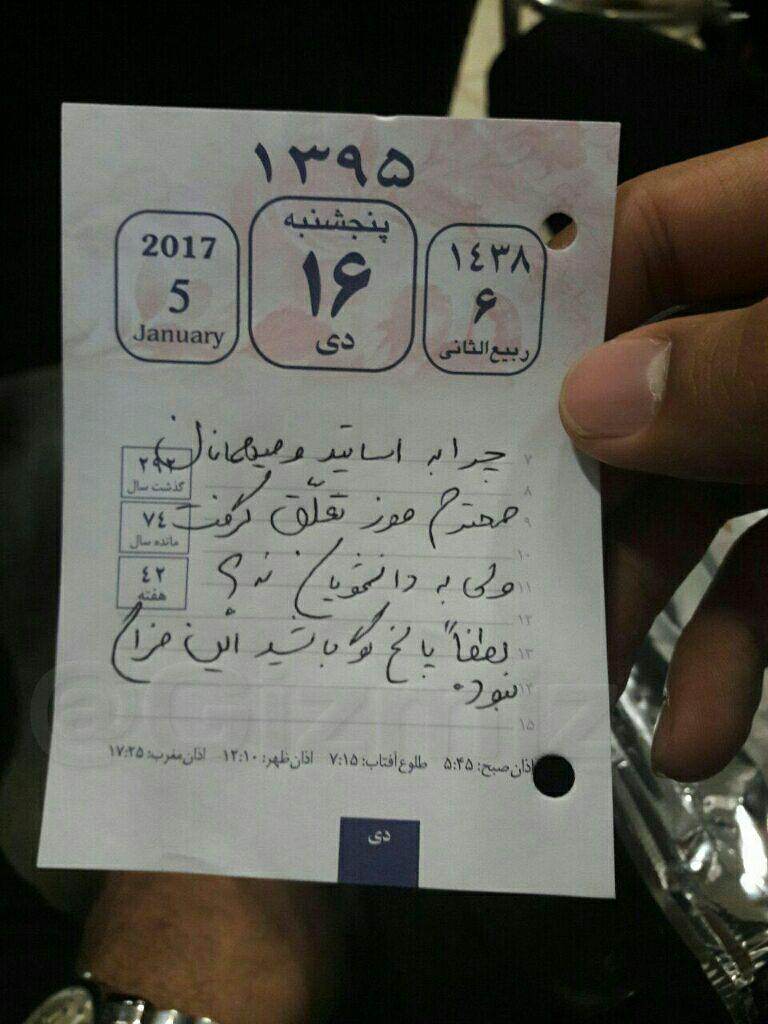 ۱۳۹۵
2017
5
January
پنجشنبه
۱۶
دی
۱۴۳۸
۶
ربیع‌الثانی
چرا به اساتید و میهمانان
۷
۲۹۲
گذشت سال
۸
محترم موز تعلّق گرفت
۹
۷۴
مانده سال
۱۰
ولی به دانشجویان نه؟
۱۱
۴۲
هفته
۱۲
لطفاً پاسخ گو باشید این مزاح
۱۳
نبود.
۱۴
۱۵
اذان صبح: ۵:۴۵ طلوع آفتاب: ۷:۱۵ اذان ظهر: ۱۲:۱۰ اذان مغرب: ۱۷:۲۵
دی